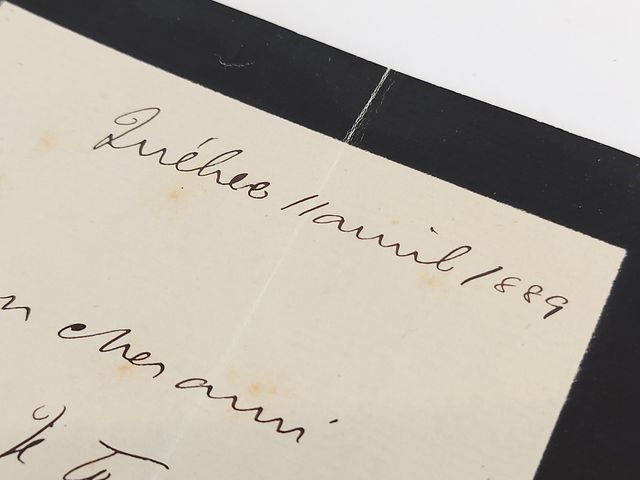 Québec 11 avril 1889
cher ami
Je